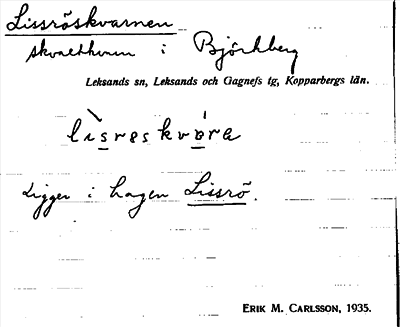 Lissröskvarnen
skvaltkvarn i Björkberg
Leksands sn, Leksands och Gagnefs tg, Kopparbergs län.
lìsrəskvárɐ
Ligger i hagen Lissrö.
ERIK M. CARLSSON, 1935.